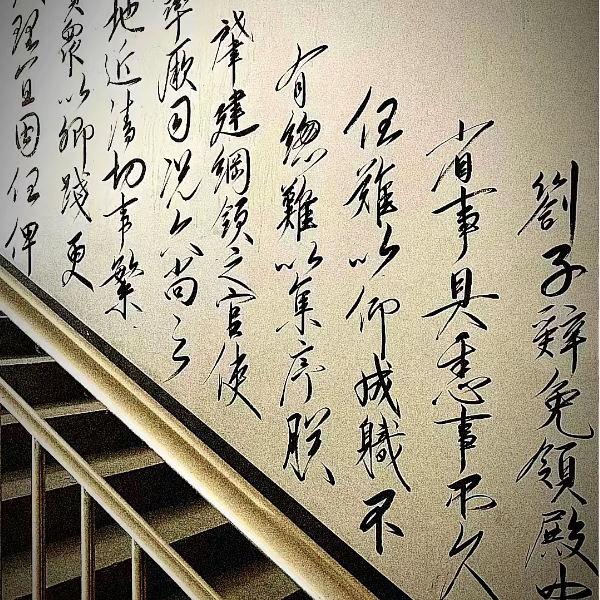 劄子辭免領殿中
省事具悉事不久
任難以仰成職不
有總難以集序朕
肇建綱領之官使
率厥司況六尚之
地近清切事繁
眾以卿踐更
理宜因任俾